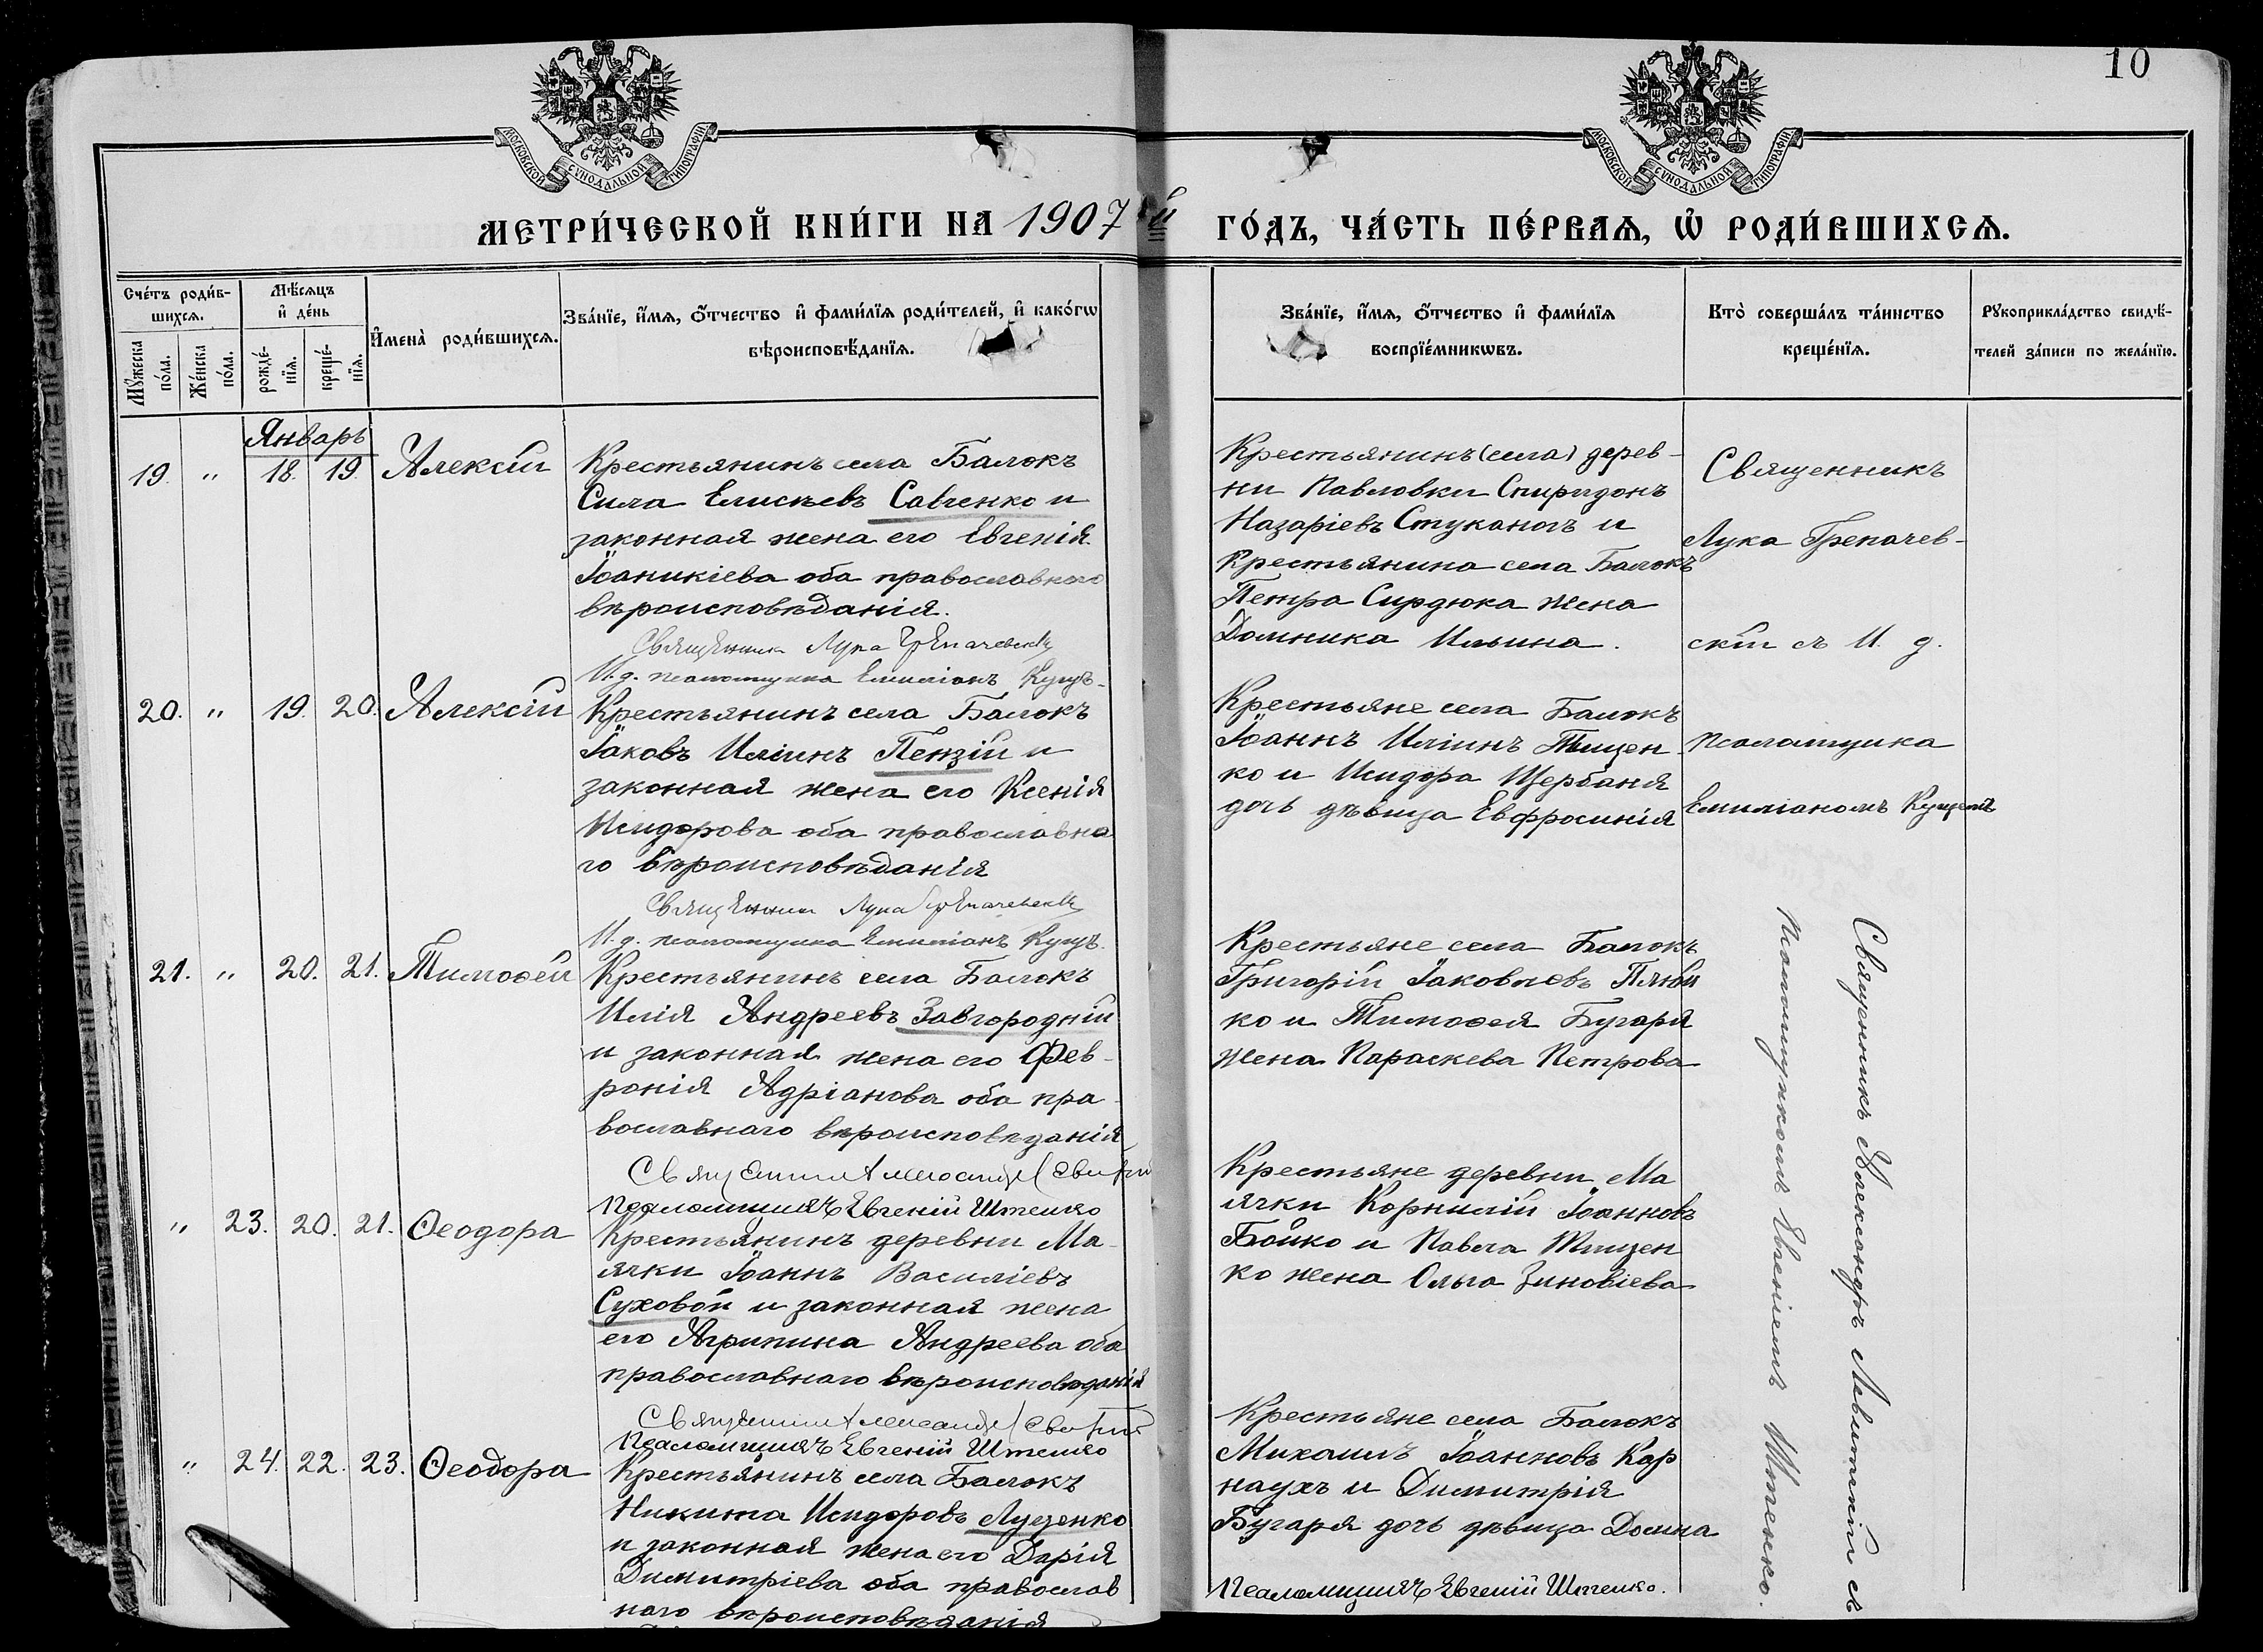 10
МОСКОВСКОЙ СѴНОДАЛЬНОЙ ТИПОГРАФІИ
МОСКОВСКОЙ СѴНОДАЛЬНОЙ ТИПОГРАФІИ
МЕТРИ́ЧЕСКОЙ КНИ́ГИ НА 1907 й ГО́ДЪ, ЧА́СТЬ ПЕ́РВАѦ, Ѡ҆ РОДИ́ВШИХСѦ.
Сче́тъ роди́в-
шихсѧ.
Мꙋ́жеска по́ла.
Же́нска по́ла.
Мѣ́сѧцъ и҆ де́нь
рожде́-нїѧ.
креще́-нїѧ.
И҆мена̀ роди́вшихсѧ.
Зва́нїе, и҆́мѧ, ѻ҆́тчество и҆ фами́лїѧ роди́телей, и҆ како́гѡ
вѣроисповѣ́данїѧ.
Зва́нїе, и҆́мѧ, ѻ҆́тчество и҆ фами́лїѧ
воспрїе́мникѡвъ.
Кто̀ соверша́лъ та́инство
креще́нїѧ.
Рꙋкоприкла́дство свидѣ́-
телей за́писи по жела́нїю.
Январь
19. " 18. 19. Алексій
Крестьянинъ села Балокъ
Сила Елисѣевъ Савченко и
законная жена его Евгенія
Іоаникіева оба православнаго
вѣроисповѣданія.
Священникъ Лука Грепачевскій
И. д. псаломщика Емиліанъ Куцъ
Крестьянинъ (села) дерев-
ни Павловки Спиридонъ
Назаріевъ Стуканогъ и
Крестьянина села Балокъ
Петра Сирдюка жена
Домника Ильина.
Священникъ
Лука Грепачев-
скій съ И. д.
псаломщика
Емиліаномъ Куцемъ
20. " 19. 20. Алексій
Крестьянинъ села Балокъ
Іаковъ Иліинъ Пензій и
законная жена его Ксенія
Исидорова оба православна
го вѣроисповѣданія
Священникъ Лука Грепачевскій
И. д. псаломщика Емиліанъ Куцъ.
Крестьяне села Балокъ
Іоаннъ Иліинъ Тищен-
ко и Исидора Щербаня
дочь дѣвица Евфросинія
21. " 20. 21. Тимоѳей
Крестьянинъ села Балокъ
Илія Андреевъ Завгородній
и законная жена его Фев-
ронія Адріанова оба пра-
вославнаго вѣроисповѣданія
Священникъ Александръ
Псаломщикъ Евгеній Штепко
Крестьяне села Балокъ
Григорій Іаковлевъ
ко и Тимоѳея Бугаря
жена Параскева Петрова
Священникъ Александръ Левитскій съ
Псаломщикомъ Евгеніемъ Штепко.
" 23. 20. 21. Ѳеодора
Крестьянинъ деревни Ма-
ячки Іоаннъ Василіевъ
Суховой и законная жена
его Агрипина Андреева оба
православнаго вѣроисповѣданія
Священникъ Александръ
Псаломщикъ Евгеній Штепко
Крестьяне деревни Ма
ячки Корнилій Іоанновъ
Бойко и Павла Тищен
ко жена Ольга Зиновіева
" 24. 22. 23. Ѳеодора
Крестьянинъ села Балокъ
Никита Исидоровъ Луценко
и законная жена его Дарія
Димитріева оба православ
наго вѣроисповѣданія
Крестьяне села Балокъ
Михаилъ Іоанновъ Кар
наухъ и Димитрія
Бугаря дочь дѣвица Домна
Псаломщикъ Евгеній Штепко.